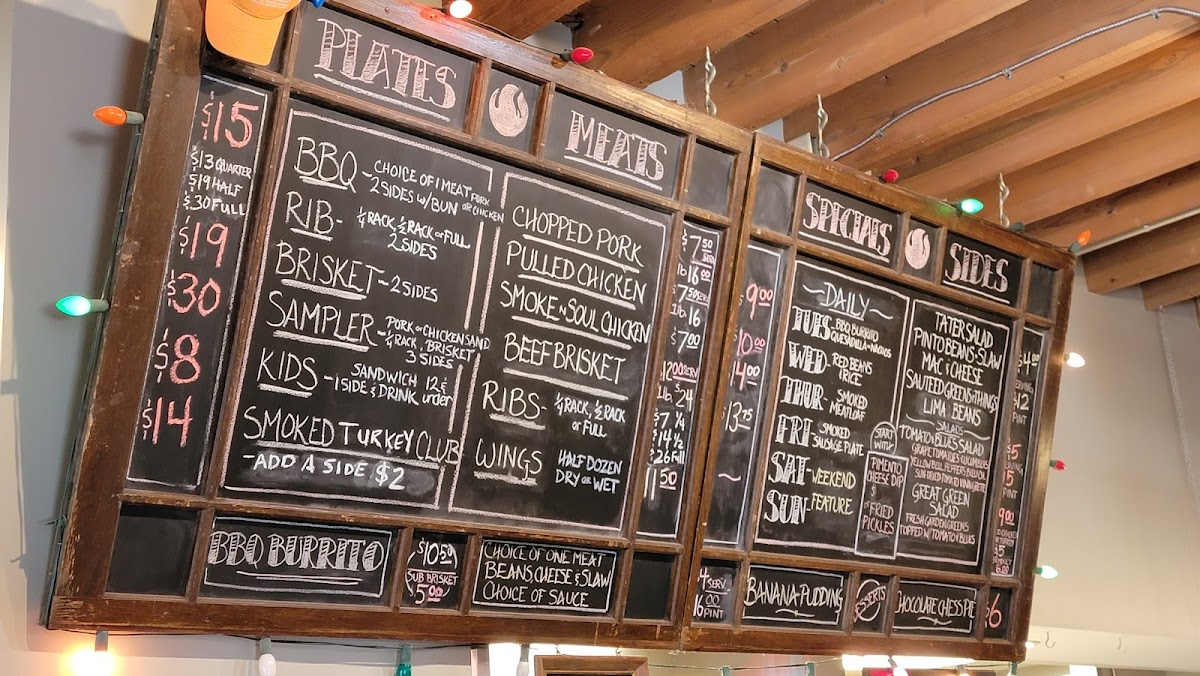 PLATES
$15
$13 QUARTER
$19 HALF
$30 FULL
$19
$30
$8
$14
BBQ - CHOICE OF 1 MEAT PORK OR CHICKEN
2 SIDES W/BUN
RIB - ¼ RACK, ½ RACK OR FULL
2 SIDES
BRISKET - 2 SIDES
SAMPLER - PORK OR CHICKEN SAND
¼ RACK, BRISKET
3 SIDES
KIDS - SANDWICH 12 & under
1 SIDE & DRINK
SMOKED TURKEY CLUB
- ADD A SIDE $2
MEATS
CHOPPED PORK
PULLED CHICKEN
SMOKE N SOUL CHICKEN
BEEF BRISKET
RIBS - ¼ RACK, ½ RACK
OR FULL
WINGS HALF DOZEN
DRY OR WET
$7 50
lb 16 00
$7 50
lb. 16
$7 00
12 00
lb. $24
$7 ¼
$14 ½
$26 Full
11 50
BBQ BURRITO
$10.50
SUB BRISKET
5.00
CHOICE OF ONE MEAT
BEANS CHEESE & SLAW
CHOICE OF SAUCE
SPECIALS
$9.00
10.00
14.00
$13.75
~
~DAILY~
TUES BBQ BURRITO
QUESADILLA - NACHOS
WED RED BEANS
& RICE
THUR SMOKED
MEATLOAF
FRI SMOKED
SAUSAGE PLATE
SAT WEEKEND
SUN FEATURE
START
WITH
PIMENTO
CHEESE DIP
OR FRIED
PICKLES
SIDES
TATER SALAD
PINTO BEANS - SLAW
MAC & CHEESE
SAUTED GREEN THINGS
LIMA BEANS
SALADS
TOMATO & BLUES SALAD
GRAPE TOMATOES CUCUMBERS
YELLOW BELL PEPPERS BASIL OIL
SUN-DRIED TOMATO VINNIGRETTE
GREAT GREEN
SALAD
FRESH GARDEN GREENS
TOPPED W/TOMATO & BLUES
$4.00
$12
PINT
PINT
9.00
$4 SERV
PINT
BANANA PUDDING
DESSERTS
CHOCOLATE CHESS PIE
$6